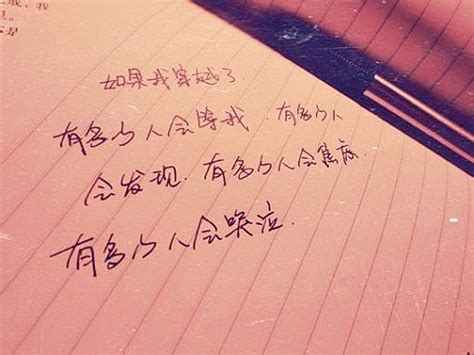 如果我穿越了.
有多少人会等我 有多少人
会发现.有多少人会焦虑.
有多少人会哭泣.